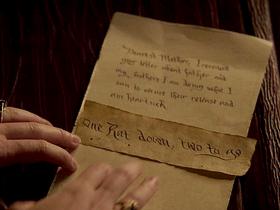 "Dearest Mother, I received
your letter about father and
my brothers I am doing what I
can to ensure their release and
am heartsick
One Rat down, two to go